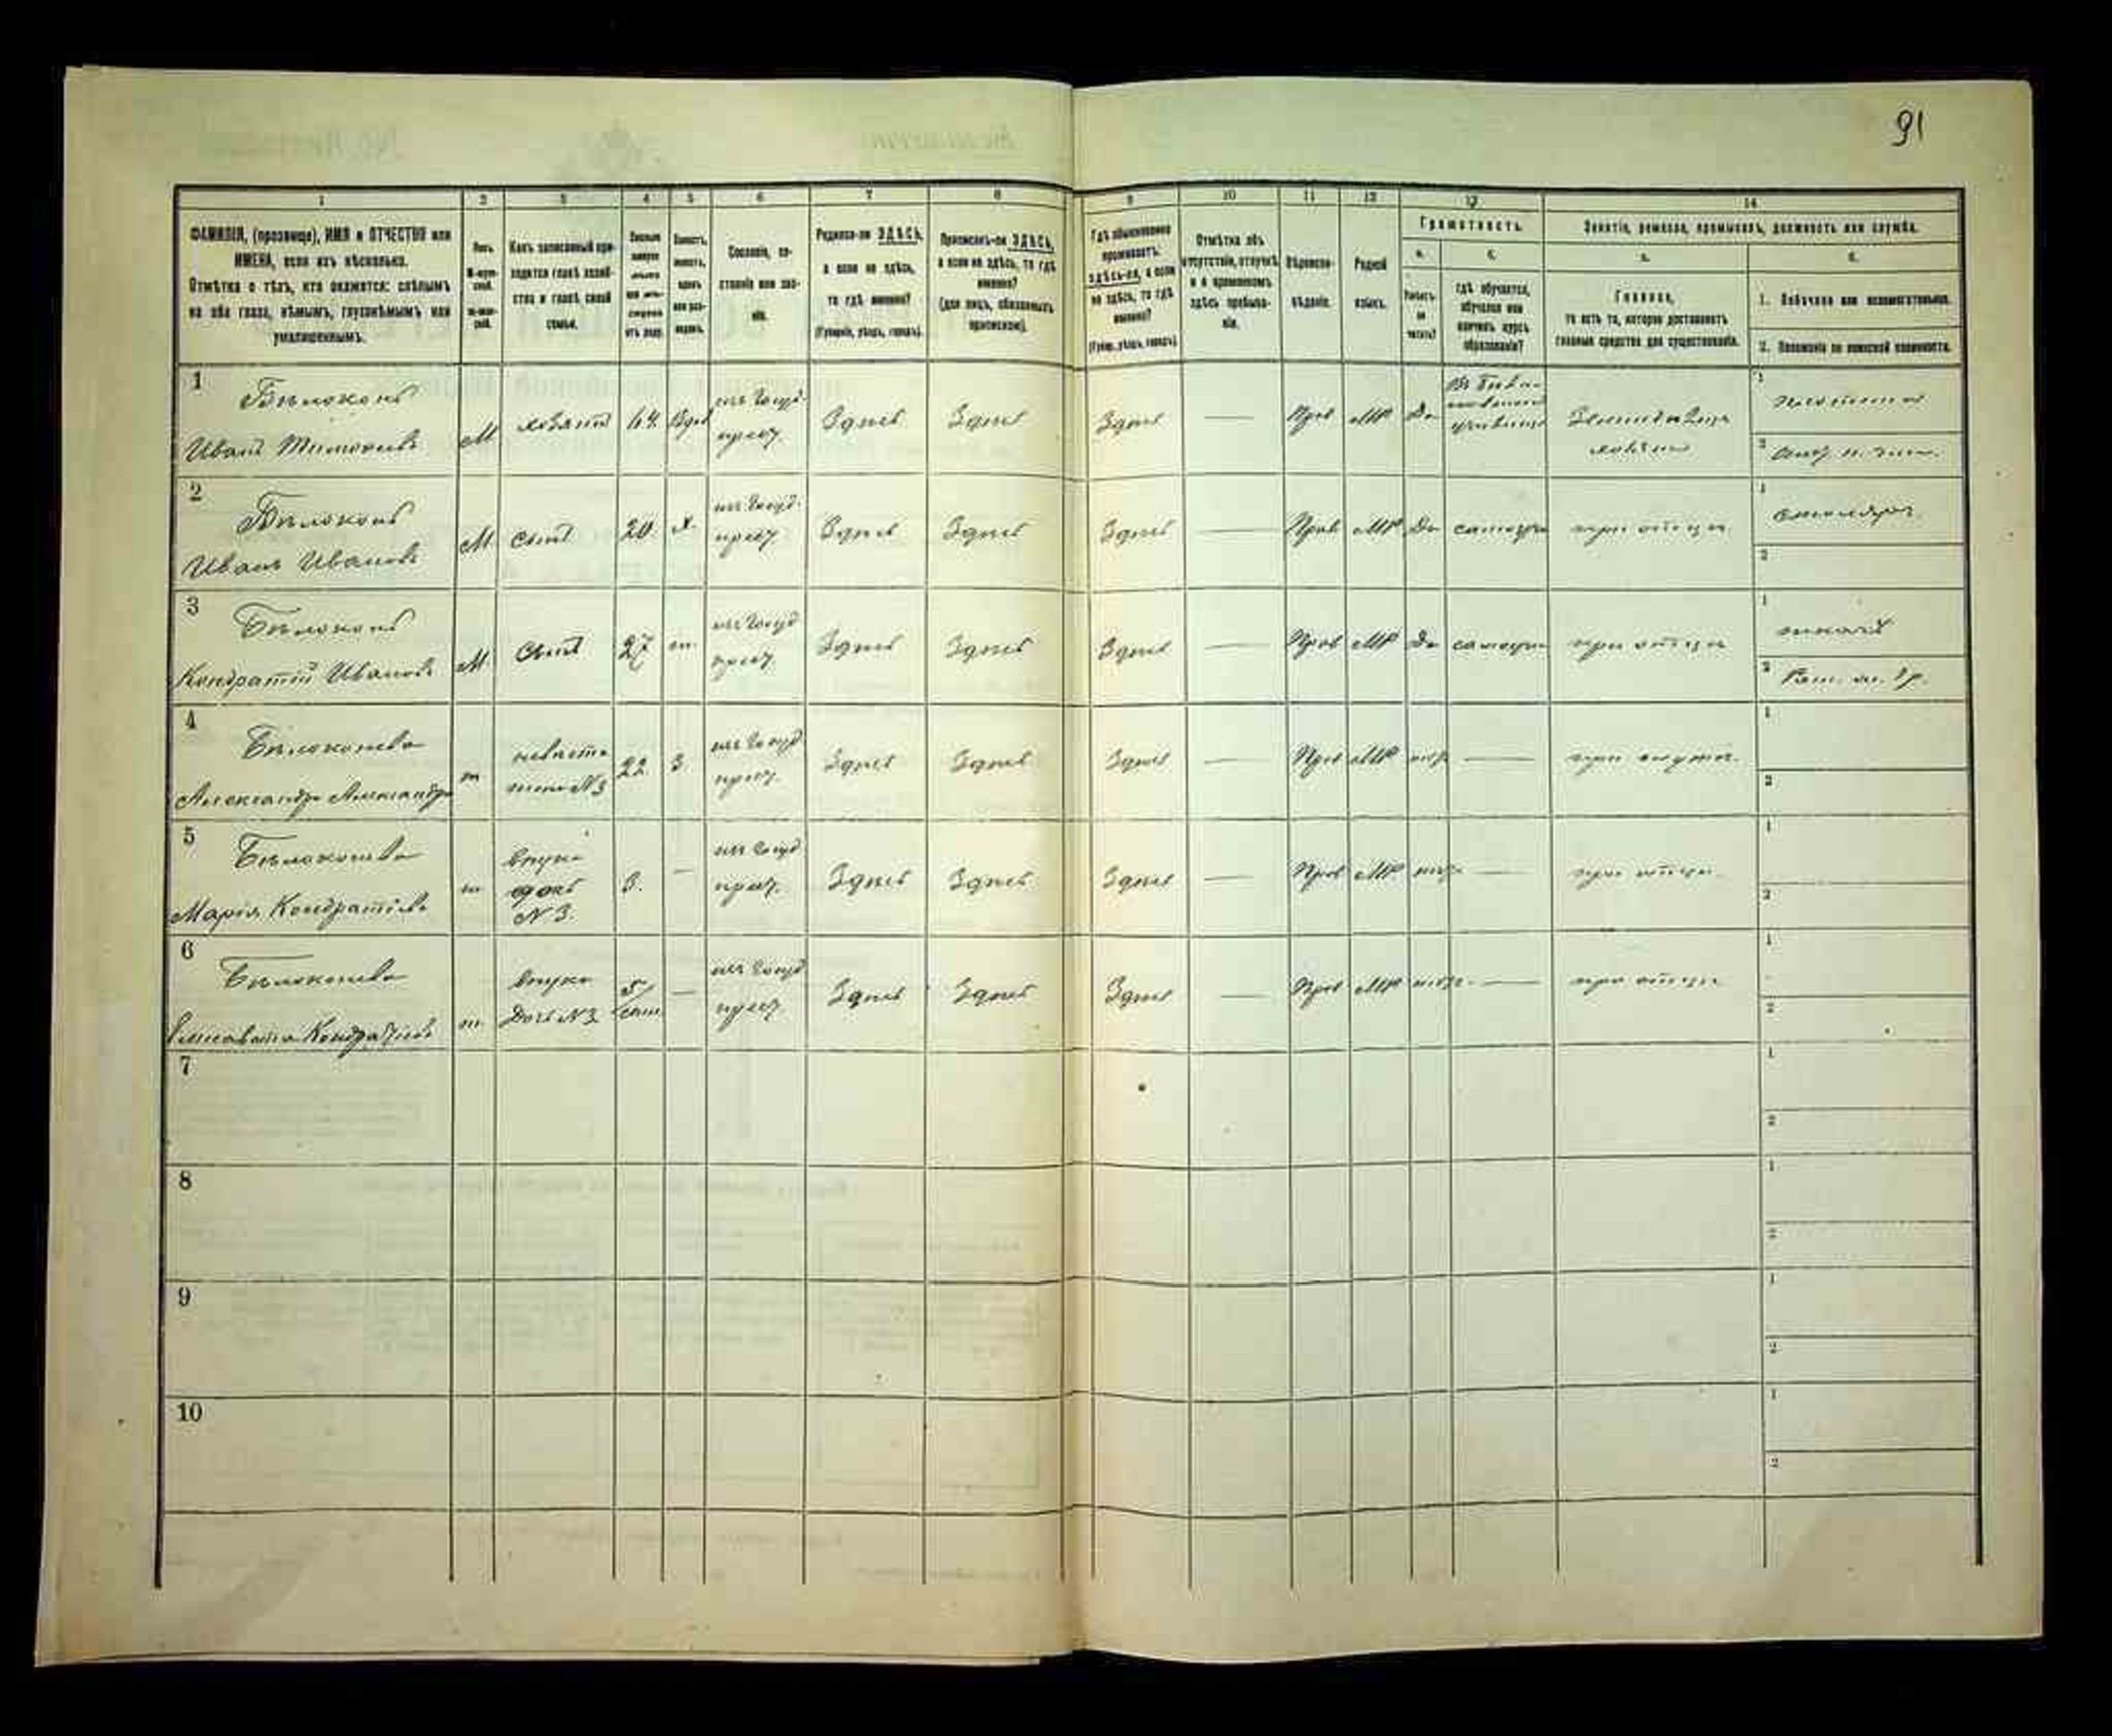 91
1 2 3 4 5 6 7 8 9 10 11 12 13 14
ФАМИЛІЯ, (прозвище), ИМЯ и ОТЧЕСТВО или
ИМЕНА, если ихъ нѣсколько.
Отмѣтка о тѣхъ, кто окажется: слѣпымъ
на оба глаза, нѣмымъ, глухонѣмымъ или
умалишеннымъ.
Полъ.
М-муж-
ской.
Ж-жен-
скій.
Какъ записанный при-
ходится главѣ хозяй-
ства и главѣ своей
семьи.
Сословіе, со-
стояніе или зва-
ніе.
Родился-ли ЗДѢСЬ,
а если не здѣсь,
то гдѣ именно?
(Губернія, уѣздъ, городъ).
Приписанъ-ли ЗДѢСЬ,
а если не здѣсь, то гдѣ
именно?
(для лицъ, обязанныхъ
припискою).
Гдѣ обыкновенно
проживаетъ:
здѣсь-ли, а если
не здѣсь, то гдѣ
именно?
(Губер., уѣздъ, городъ)
Отмѣтка объ
отсутствіи, отлучкѣ
и о временномъ
здѣсь пребыва-
ніи.
Вѣроиспо-
вѣданіе.
Родной
языкъ.
Грамотность.
а. б.
Умѣетъ-
ли
читать?
гдѣ обучается,
обучался или
кончилъ курсъ
образованія?
Занятіе, ремесло, промыселъ, должность или служба.
а. б.
Главное,
то есть то, которое доставляетъ
главныя средства для существованія.
1. Побочное или вспомогательное.
2. Положеніе по воинской повинности.
1
Бѣлоконь
Иванъ Тимофеевъ
М хозяинъ 64 Вдов
изъ госуд.
крест.
Здѣсь Здѣсь Здѣсь — Прав МР Да
Земледѣлецъ
хозяинъ
1
2
2
Бѣлоконь
Иванъ Ивановъ
М сынъ 20 х.
изъ госуд.
крест.
Здѣсь Здѣсь Здѣсь — Прав МР Да самоучк при отцѣ
1 столяръ
2
3
Бѣлоконь
Кондратій Ивановъ
М сынъ 27 ж.
изъ госуд
крест.
Здѣсь Здѣсь Здѣсь — Прав МР Да самоучк при отцѣ
1 ткачъ
2
4
Бѣлоконева
Александра Александр
ж
невѣстка
жена №3
22 З
изъ госуд
крест.
Здѣсь Здѣсь Здѣсь — Прав МР нѣт — при мужѣ
1
2
5
Бѣлоконева
Марія Кондратіева
ж
внука
дочь
№ 3.
3. —
изъ госуд
крест.
Здѣсь Здѣсь Здѣсь — Прав МР нѣт — при отцѣ
1
2
6
Бѣлоконева
Елисавета Кондратіев
ж
внука
Дочь №3
5/ —
изъ госуд
крест.
Здѣсь Здѣсь Здѣсь — Прав МР нѣт — при отцѣ
1
2
7
1
2
8
1
2
9
1
2
10
1
2